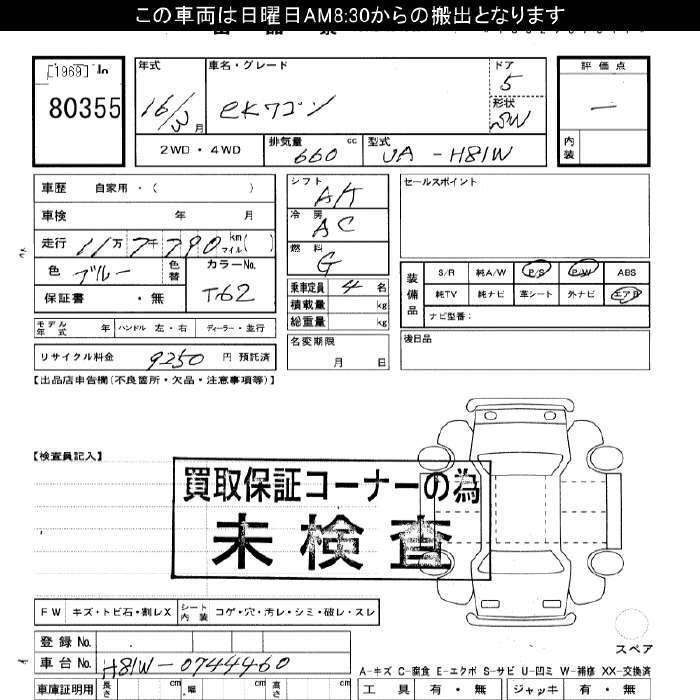 この車両は日曜日AM8:30からの搬出となります
[1969] In
80355
年式
16/3 月
車名・グレード
eKワゴン
ドア
5
形状
SW
評価点
—
内装
2WD・4WD
排気量 660 cc
型式 UA-H81W
車歴 自家用・( )
車検 年 月
走行 11万7千790 km マイル ( )
色 ブルー 色替
カラーNo. T62
保証書 ・無
シフト AT
冷房 AC
燃料 G
乗車定員 4 名
積載量 kg
総重量 kg
セールスポイント
装備品
S/R 純A/W P/S P/W ABS
純TV 純ナビ 革シート 外ナビ エアB
ナビ型番:
モデル年式 年 ハンドル 左・右 ディーラー・並行
名変期限
月 日
後日品
リサイクル料金 9250 円 預託済
【出品店申告欄(不良箇所・欠品・注意事項等)】
【検査員記入】
買取保証コーナーの為
未検査
FW キズ・トビ石・割レX シート内装 コゲ・穴・汚レ・シミ・破レ・スレ
スペア
登録No.
車台No. H81W-0744460
A-キズ C-腐食 E-エクボ S-サビ U-凹ミ W-補修 XX-交換済
車庫証明用 長さ cm 幅 cm 高さ cm
工具 有・無 ジャッキ 有・無